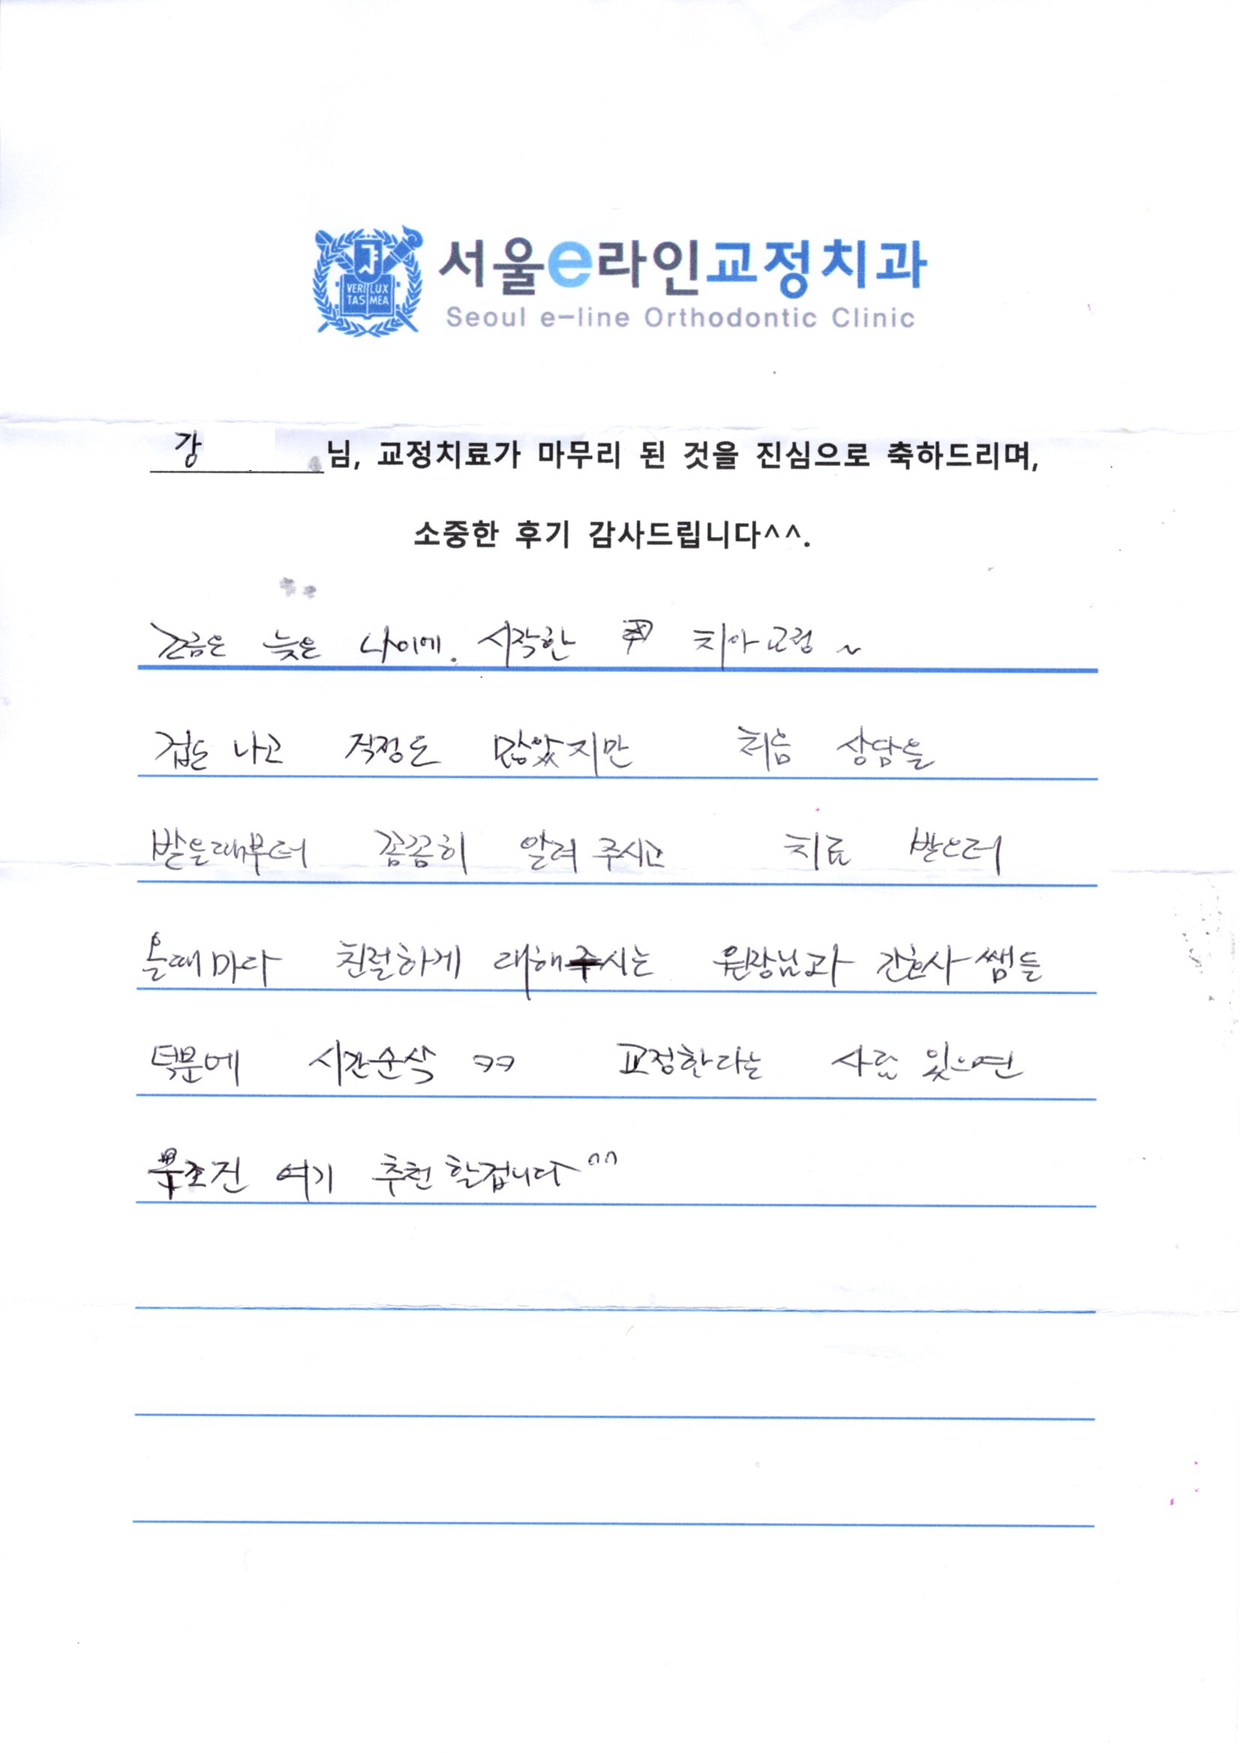 서울e라인교정치과
Seoul e-line Orthodontic Clinic
VERI LUX
TAS MEA
강 님, 교정치료가 마무리 된 것을 진심으로 축하드리며,
소중한 후기 감사드립니다^^.
조금은 늦은 나이에. 시작한 치아교정~
겁도 나고 걱정도 많았지만 처음 상담을
받을때부터 꼼꼼히 알려 주시고 치료 받으러
올때마다 친절하게 대해주시는 원장님과 간호사쌤들
덕분에 시간순삭 ㅋㅋ 교정한다는 사람 있으면
무조건 여기 추천할겁니다^^